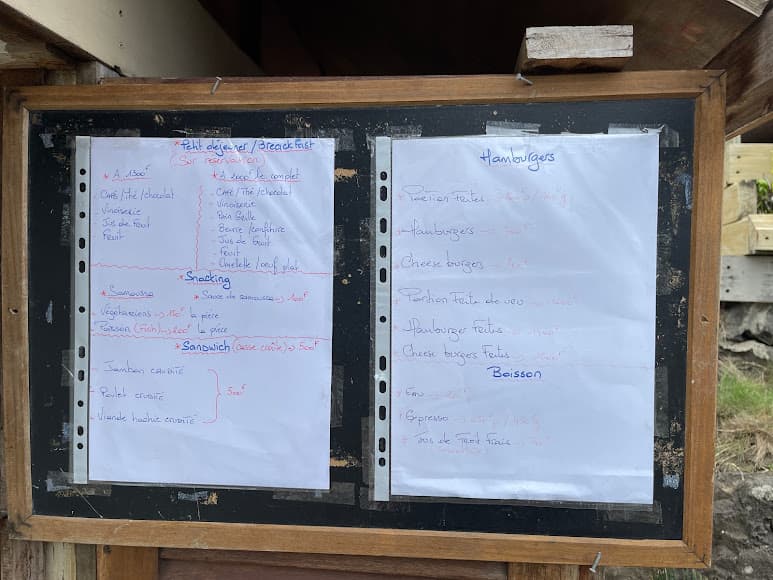 * Petit déjeuner / Breackfast
(Sur réservation)
* A 1300F
- CAFÉ / Thé / chocolat
- Vinoiserie
- Jus de Fruit
- Fruit
* A 2000F le complet
- CAFÉ / Thé / chocolat
- Vinoiserie
- Pain Grille
- Beurre / confiture
- Jus de fruit
- Fruit
- Omelette / oeuf plat
Snacking
* Samoussa
* Sauce de samoussa → 100F
- Végétariens → 150F la pièce
- Poisson (Fish) → 200F la pièce
* Sandwich (casse croûte) → 500F
- Jambon CRUDITÉ
- Poulet CRUDITÉ
- Viande hachée CRUDITÉ
500F
Hamburgers
* Portion Frites
* Hamburgers
* Cheese burgers
* Portion Frite de
* Hamburger Frites
* Cheese burgers Frites
Boisson
* Eau
* Expresso
* Jus de Fruit Frais